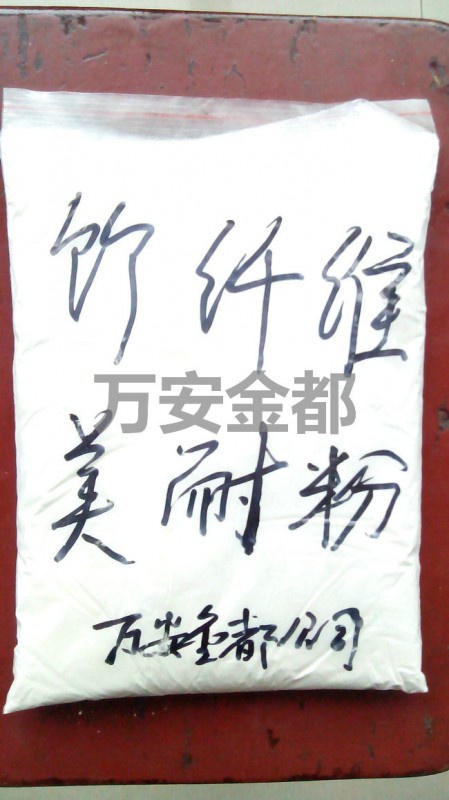 竹纤维
万安金都
美耐粉
万安金都公司